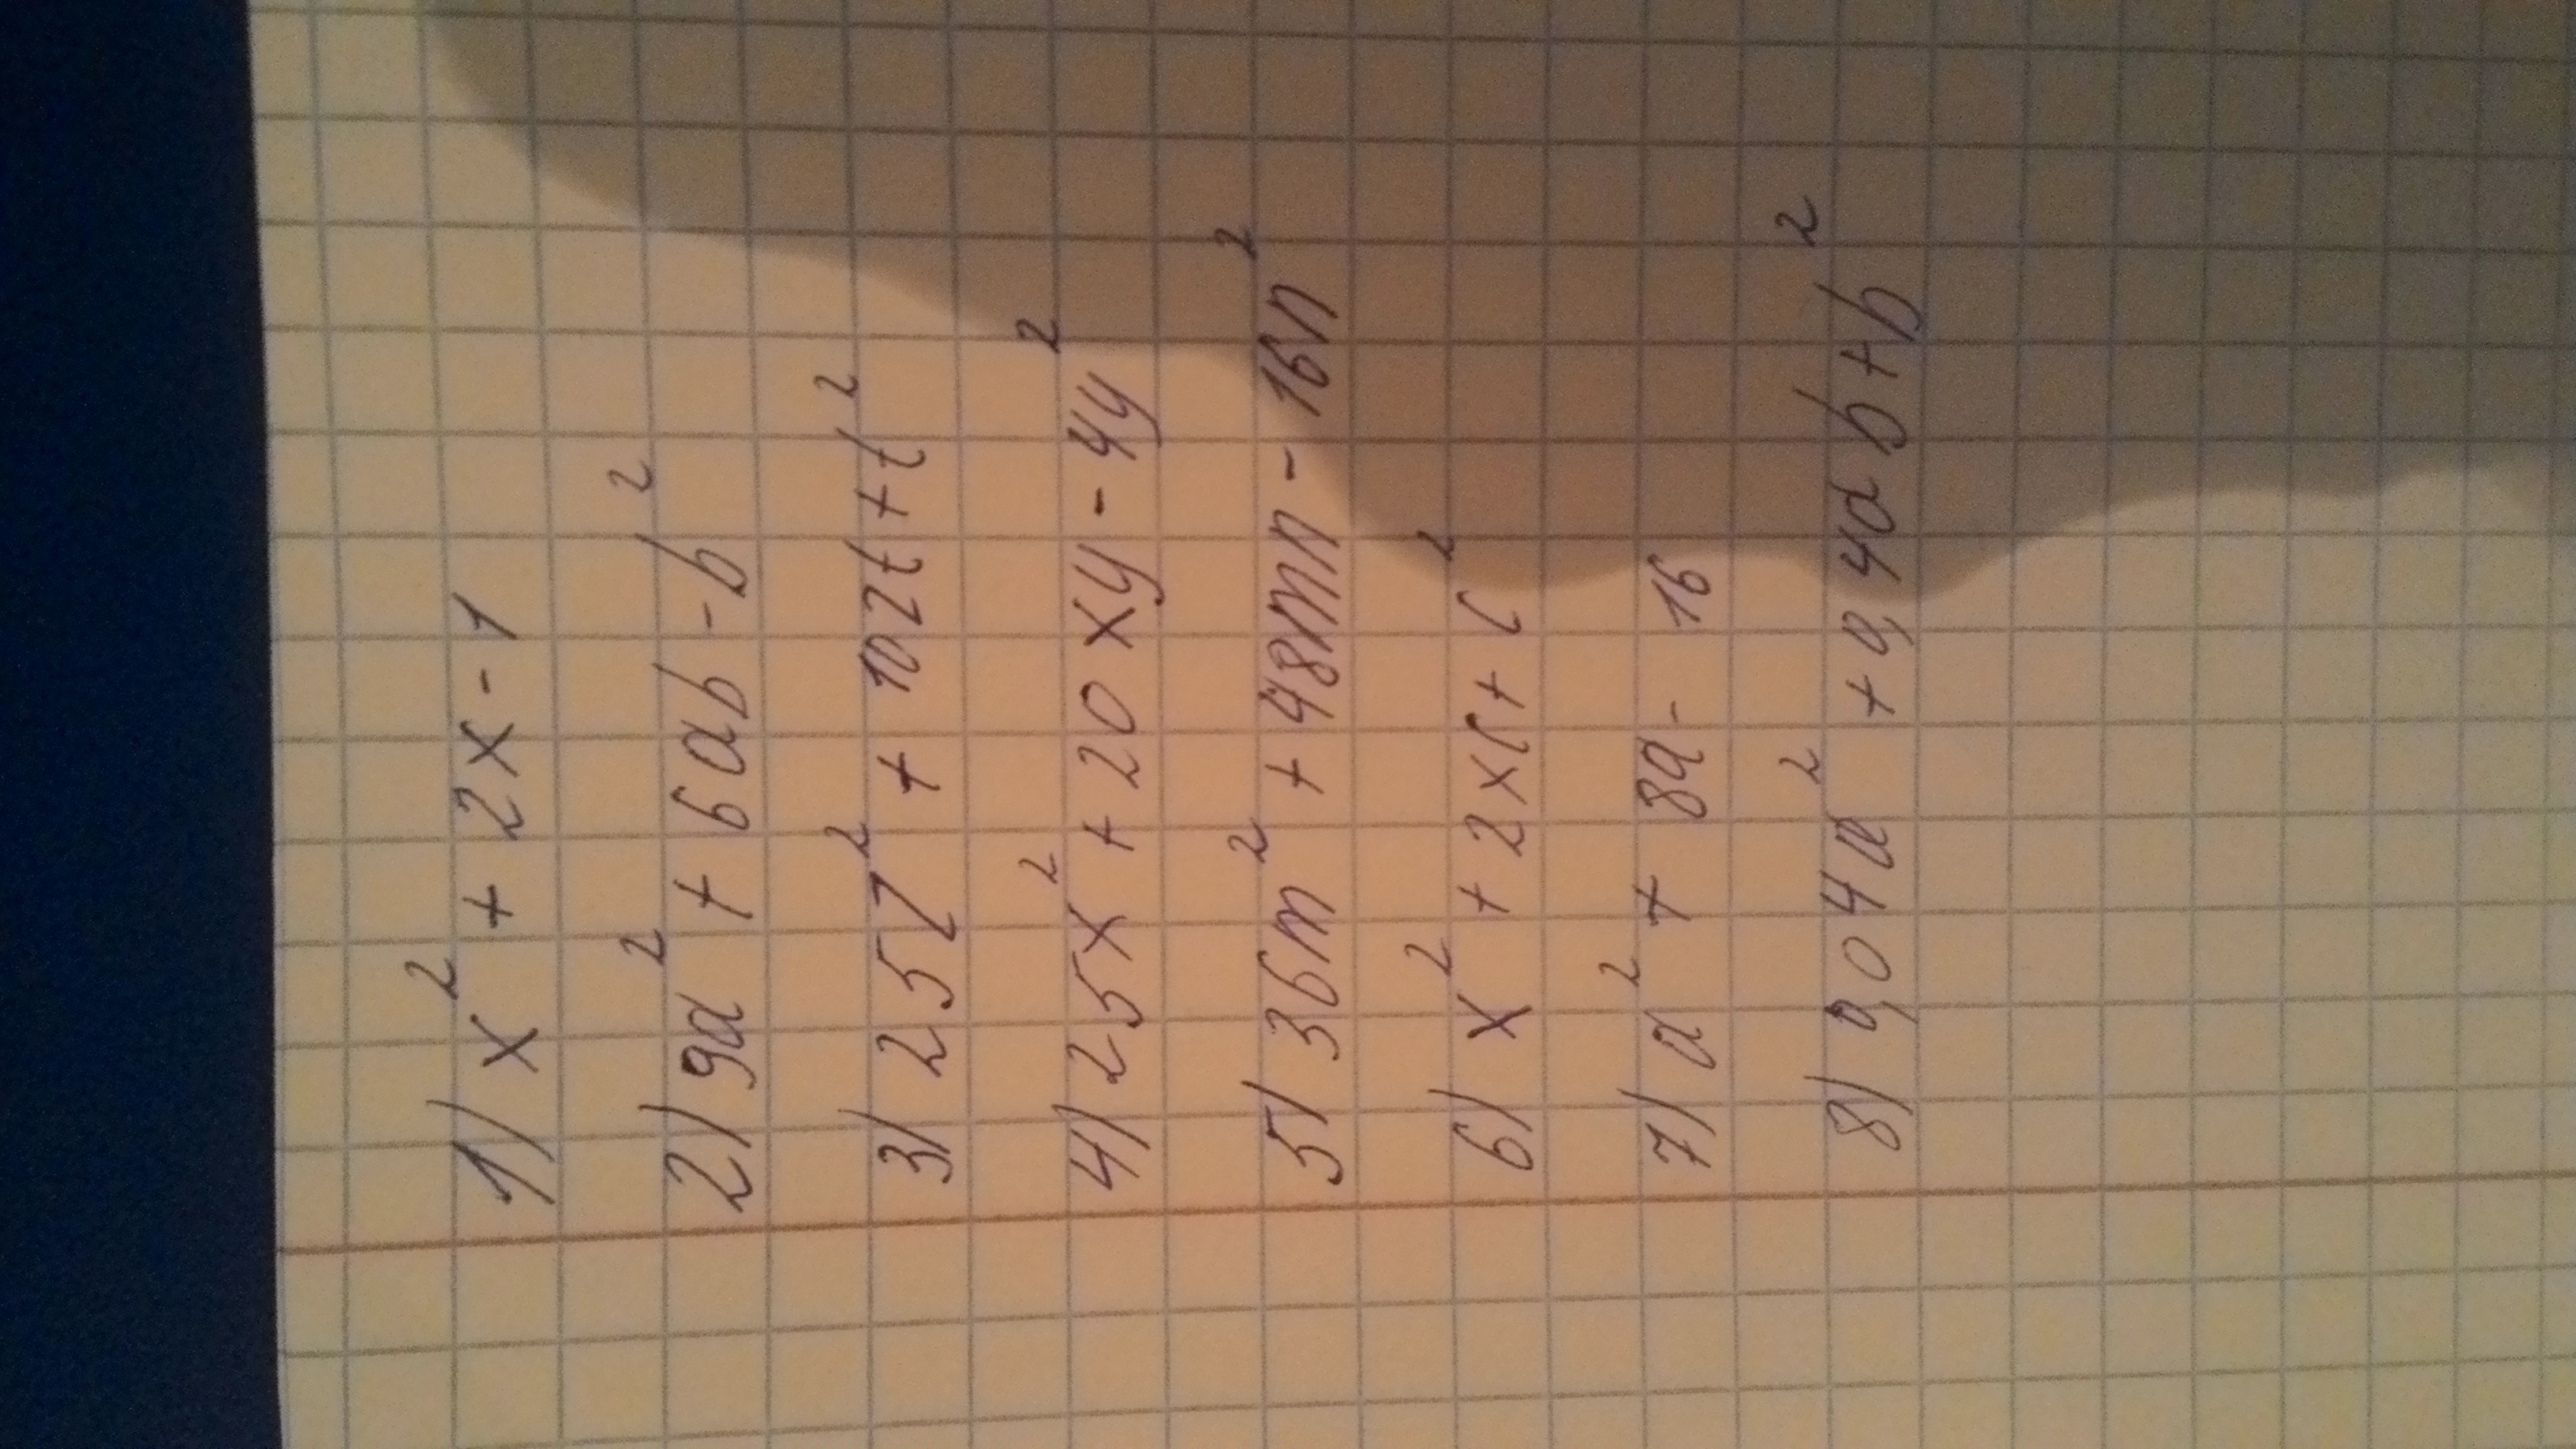 1) x² + 2x - 1
2) 9a² + 6ab - b²
3) 25z² + 10zt + t²
4) 25x² + 20xy - 4y²
5) 36m² + 48mn - 16n²
6) x² + 2xc + c²
7) a² + 8a - 16
8) 0,04a² + 0,4ab + b²